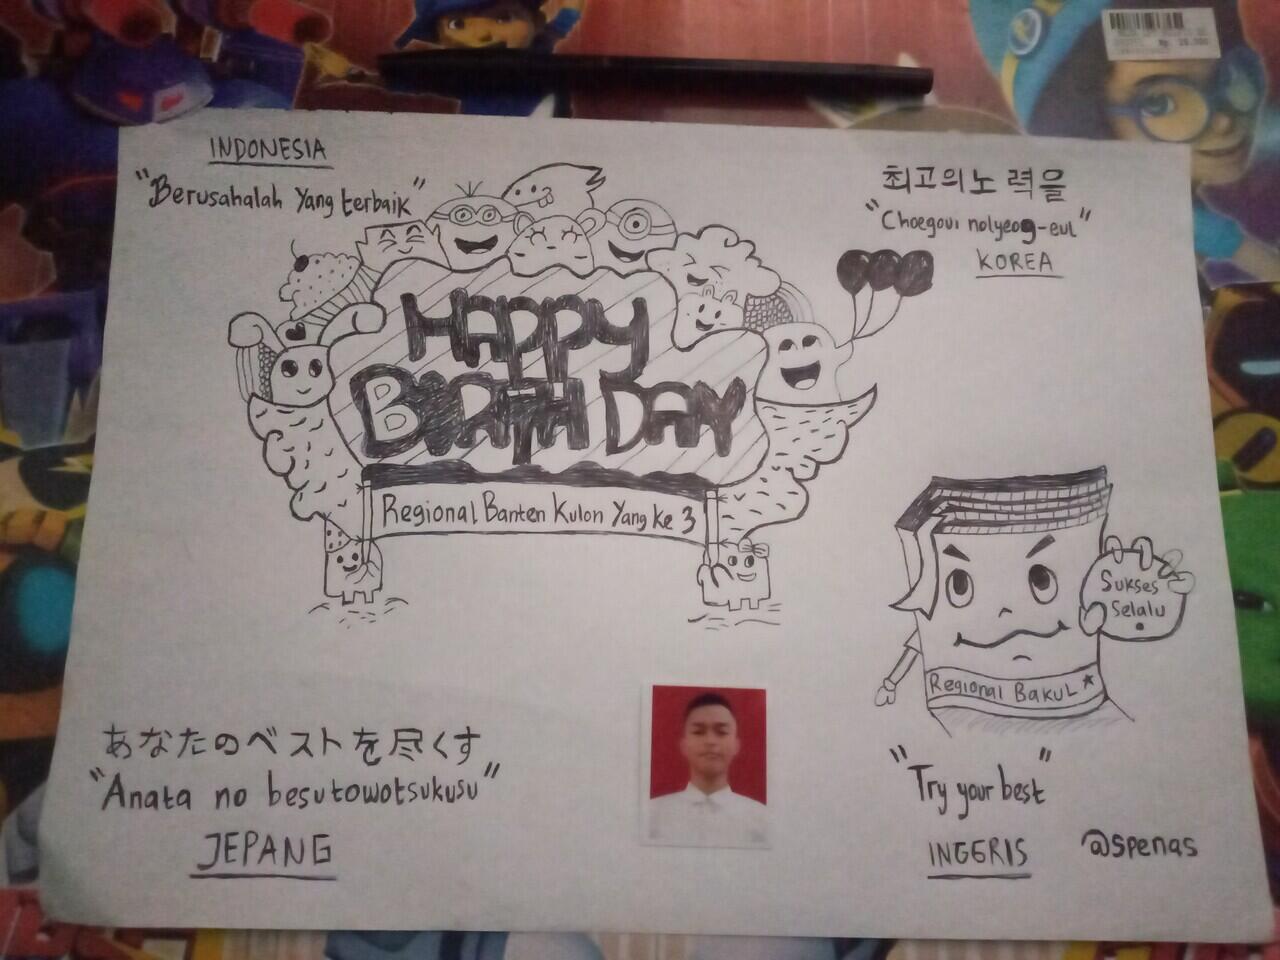 INDONESIA
"Berusahalah Yang terbaik"
최고의 노력을
"Choegoui nolyeog-eul"
KOREA
HAPPY
BIRTH DAY
Regional Banten Kulon Yang ke 3
Sukses
Selalu
Regional BAKUL
あなたのベストを尽くす
"Anata no besutowotsukusu"
JEPANG
"Try your best"
INGGRIS
@spenas